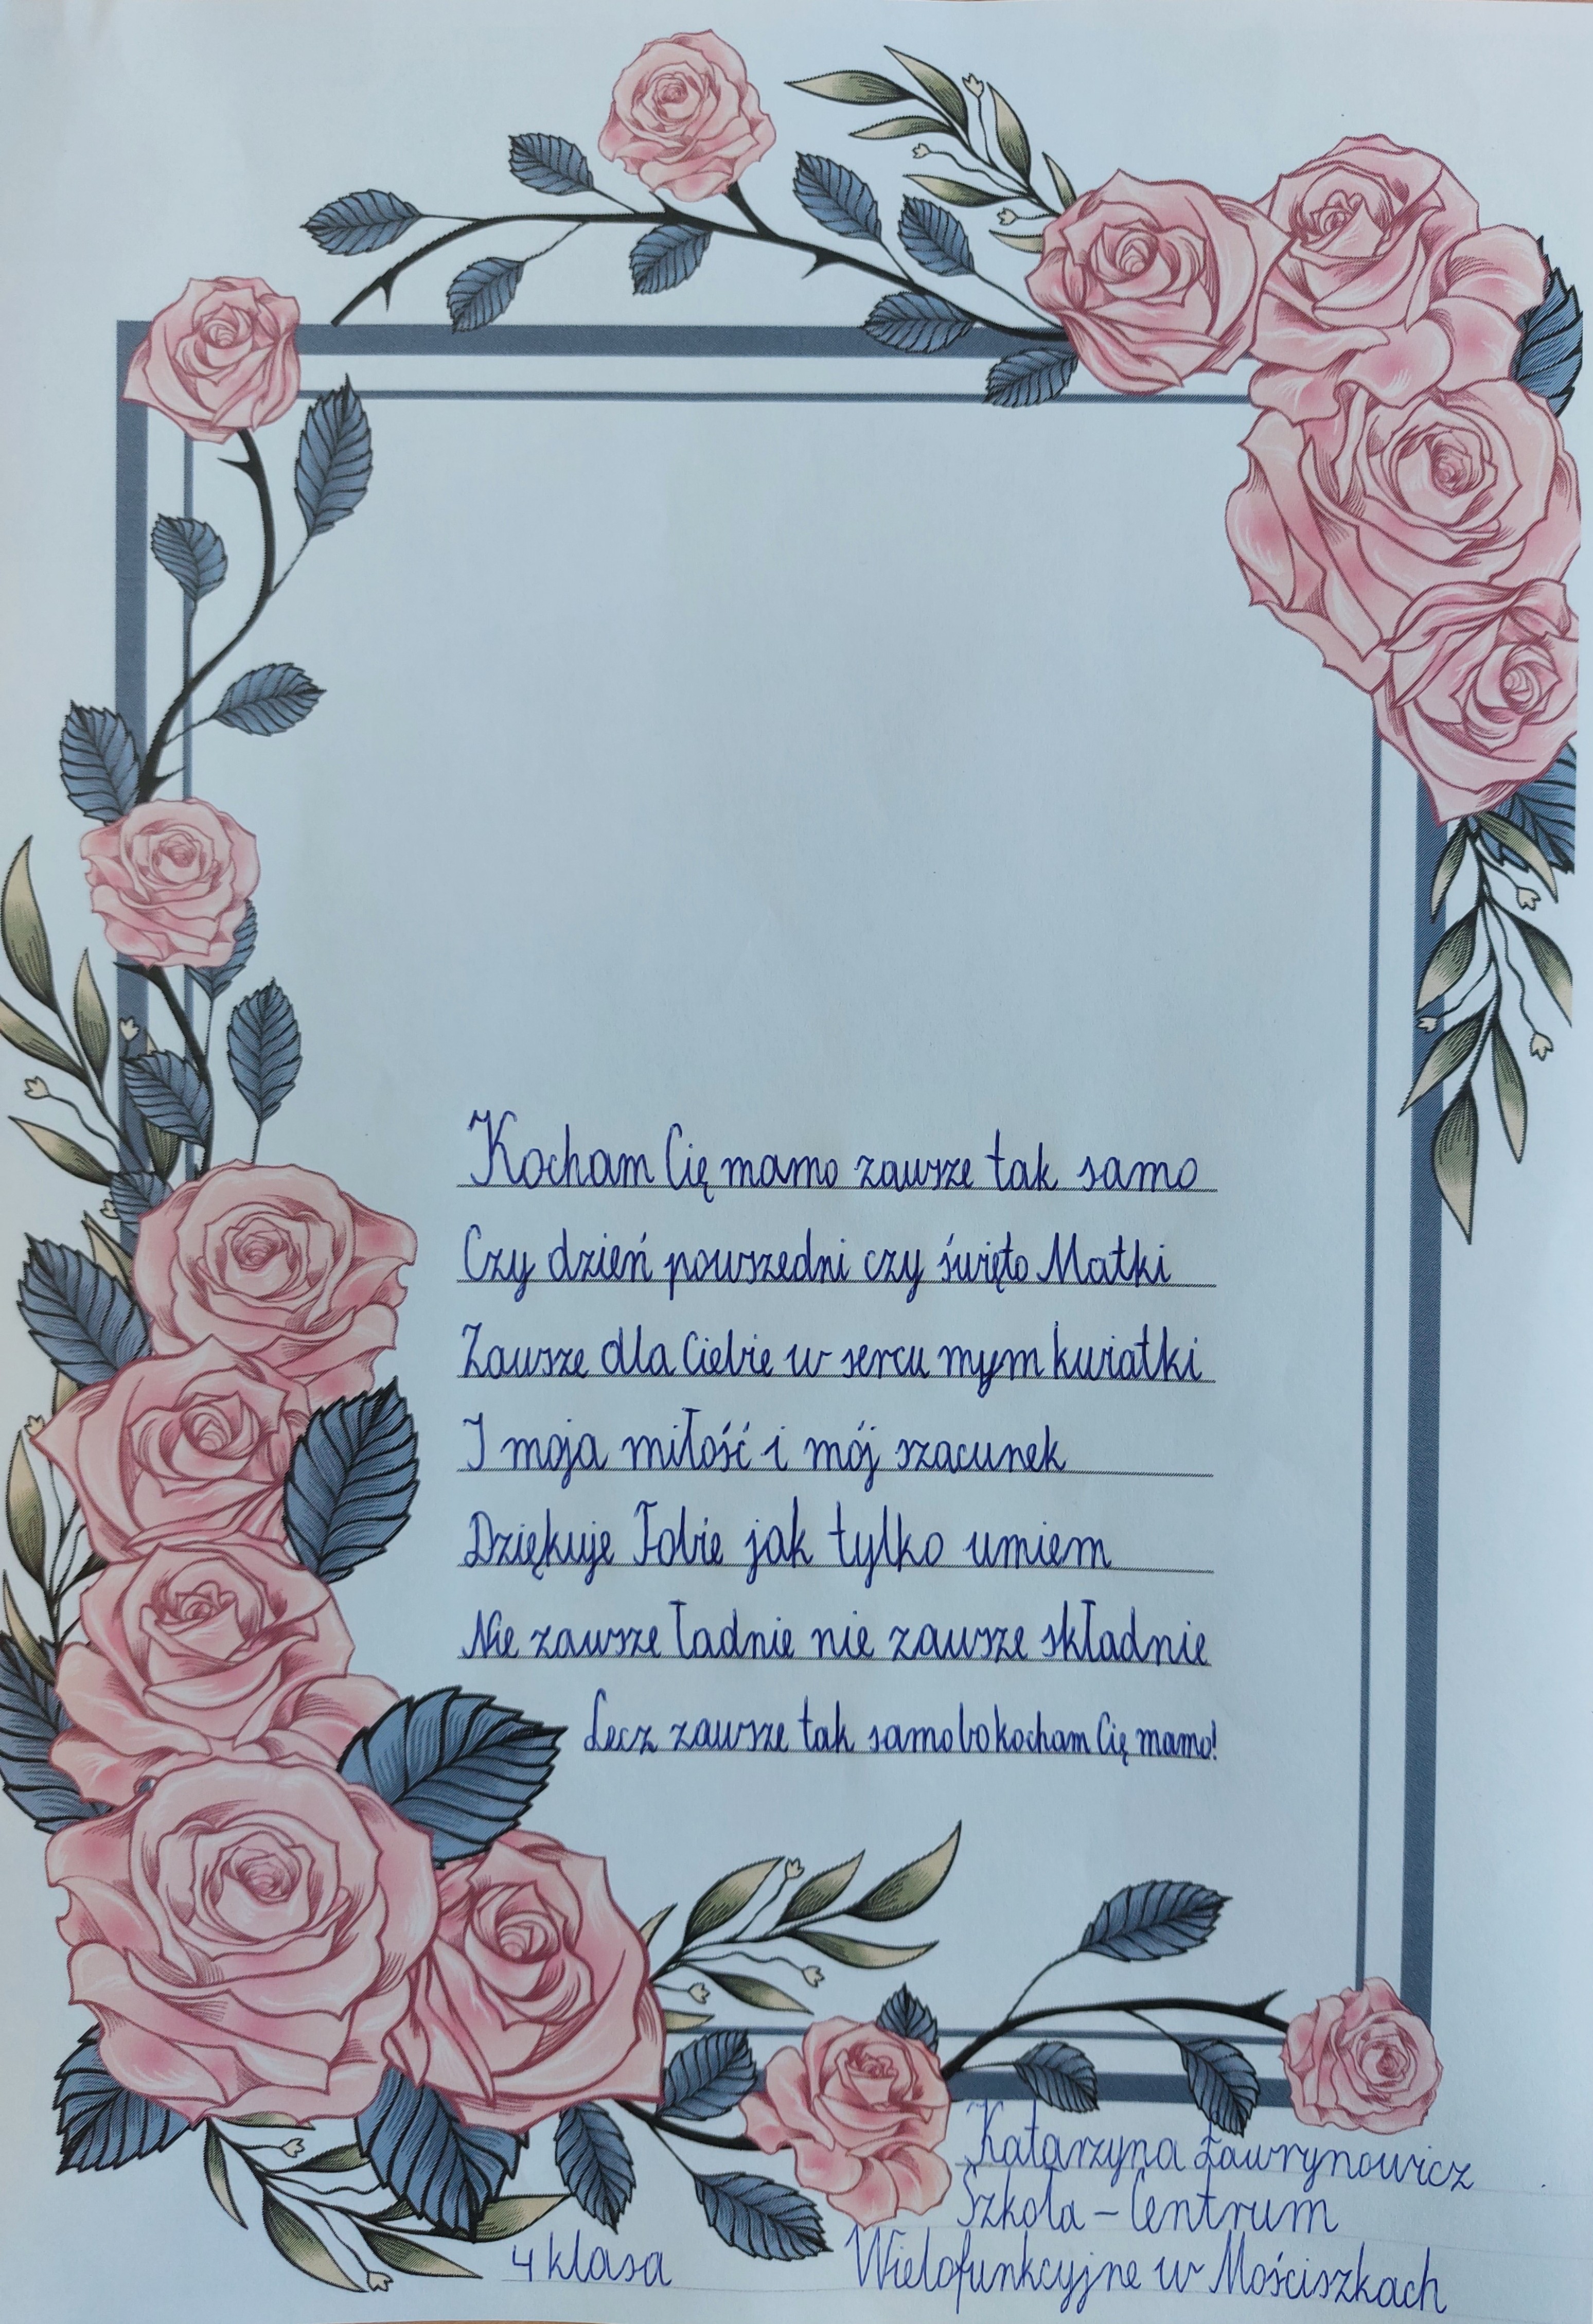 Kocham Cię mamo zawsze tak samo
Czy dzień powszedni czy święto Matki
Zawsze dla Ciebie w sercu mym kwiatki
I moja miłość i mój szacunek
Dziękuje Tobie jak tylko umiem
Nie zawsze ładnie nie zawsze składnie
Lecz zawsze tak samo bo kocham Cię mamo!
Katarzyna Ławrynowicz
Szkoła - Centrum
4 klasa Wielofunkcyjne w Mościszkach